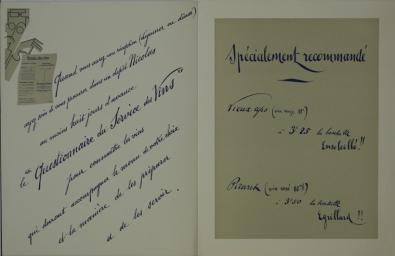 Quand vous avez une réception (déjeuner ou dîner)
ayez soin de vous procurer, dans un dépôt Nicolas
au moins huit jours d'avance
le "Questionnaire du Service des Vins"
pour connaître les vins
qui doivent accompagner le menu de votre choix
et la manière de les préparer
et de les servir.
Spécialement recommandé
Vieux apo
à 3f 25 la bouteille
Ensoleillé!!
à 3f50 la bouteille
Égrillard!!